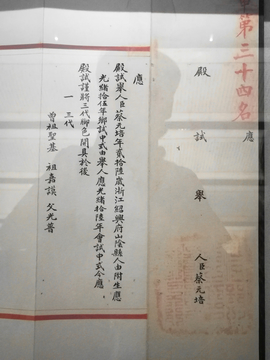 第三十四名
應
殿試舉
人臣蔡元培
應
殿試舉人臣蔡元培年貳拾陸歲浙江紹興府山陰縣人由附生應
光緒拾伍年鄉試中式由舉人應光緒拾陸年會試中式今應
殿試謹將三代腳色開具於後
一三代
曾祖聖基 祖嘉謨 父光普